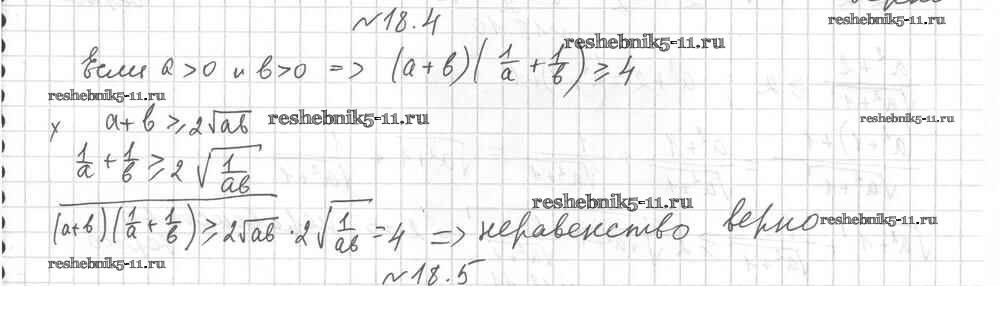 №18.4
reshebnik5-11.ru
reshebnik5-11.ru
Если a>0 и b>0 => (a+b)(1/a + 1/b) ≥ 4
reshebnik5-11.ru
x a+b ≥ 2√ab
reshebnik5-11.ru
reshebnik5-11.ru
1/a + 1/b ≥ 2 √(1/ab)
reshebnik5-11.ru
(a+b)(1/a + 1/b) ≥ 2√ab · 2√(1/ab) = 4 => неравенство верно
reshebnik5-11.ru
reshebnik5-11.ru
№18.5